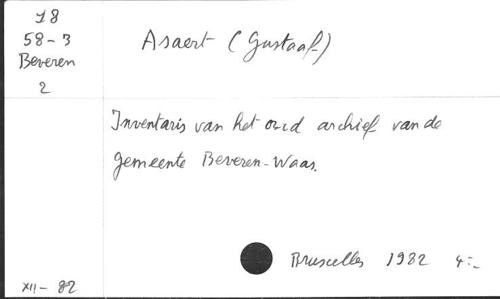 18
58-3
Beveren
2
Asaert (Gustaaf)
Inventaris van het oud archief van de
gemeente Beveren-Waas.
Bruxelles 1982 4:-
XII - 82